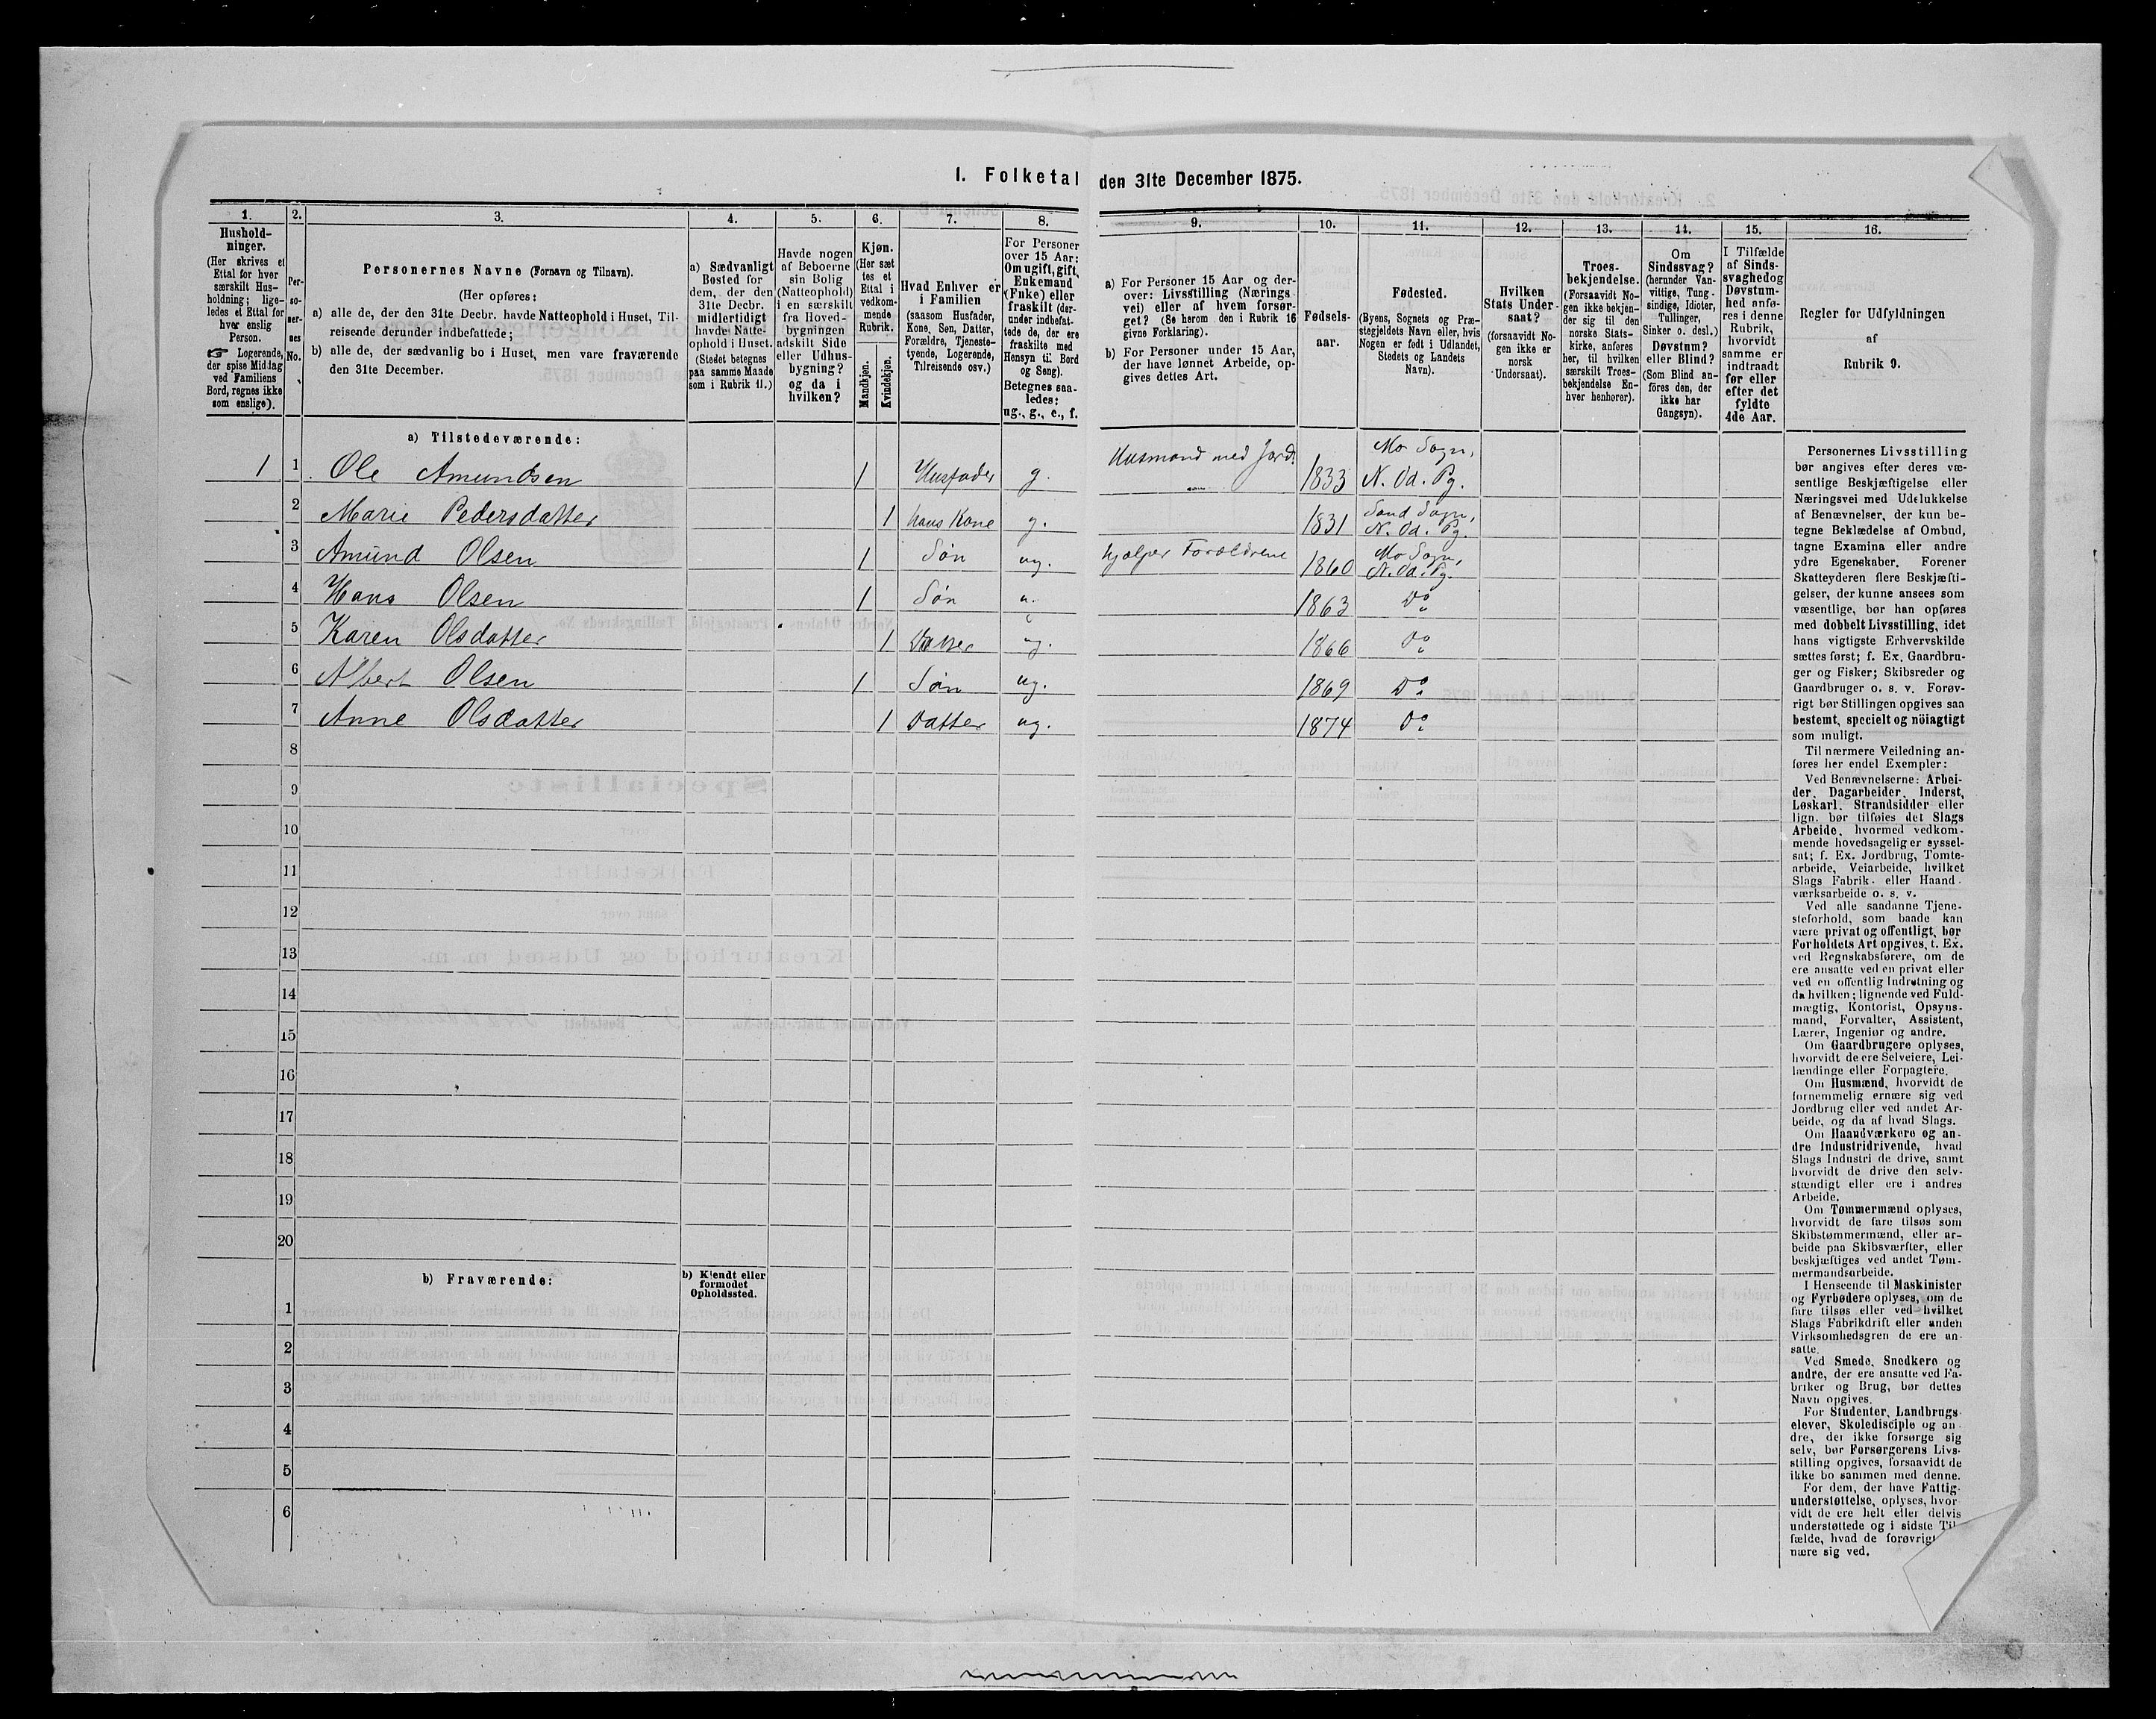 I. Folketal den 31te December 1875.
1. 2. 3. 4. 5. 6. 7. 8. 9. 10. 11. 12. 13. 14. 15. 16.
Hushold-
ninger.
(Her skrives et
Ettal for hver
særskilt Hus-
holdning; lige-
ledes et Ettal for
hver enslig
Person.
☞ Logerende,
der spise Middag
ved Familiens
Bord, regnes ikke
som enslige).
Per-
so-
ner-
nes
No.
Personernes Navne (Fornavn og Tilnavn).
(Her opføres:
a) alle de, der den 31te Decbr. havde Natteophold i Huset, Til-
reisende derunder indbefattede;
b) alle de, der sædvanlig bo i Huset, men vare fraværende
den 31te December.
a) Sædvanligt
Bosted for
dem, der den
31te Decbr.
midlertidigt
havde Natte-
ophold i Huset.
(Stedet betegnes
paa samme Maade
som i Rubrik 11.)
Havde nogen
af Beboerne
sin Bolig
(Natteophold)
i en særskilt
fra Hoved-
bygningen
adskilt Side
eller Udhus-
bygning?
og da i
hvilken?
Kjøn.
(Her sæt
tes et
Ettal i
vedkom-
mende
Rubrik.
Mandkjøn.
Kvindekjøn.
Hvad Enhver er
i Familien
(saasom Husfader,
Kone, Søn, Datter,
Forældre, Tjeneste-
tyende, Logerende,
Tilreisende osv.)
For Personer
over 15 Aar:
Om ugift, gift,
Enkemand
(Enke) eller
fraskilt (der-
under indbefat-
tede de, der ere
fraskilte med
Hensyn til Bord
og Seng).
Betegnes saa-
ledes:
ug., g., e., f.
a) For Personer 15 Aar og der-
over: Livsstilling (Nærings
vei) eller af hvem forsør-
get? (Se herom den i Rubrik 16
givne Forklaring).
b) For Personer under 15 Aar,
der have lønnet Arbeide, op-
gives dettes Art.
Fødsels-
aar.
Fødested.
(Byens, Sognets og Præ-
stegjeldets Navn eller, hvis
Nogen er født i Udlandet,
Stedets og Landets
Navn).
Hvilken
Stats Under-
saat?
(forsaavidt No-
gen ikke er
norsk
Undersaat).
Troes-
bekjendelse.
(Forsaavidt No-
gen ikke bekjen-
der sig til den
norske Stats-
kirke, anføres
her, til hvilken
særskilt Troes-
bekjendelse En-
hver henhører).
Om
Sindssvag?
(herunder Van-
vittige, Tung-
sindige, Idioter,
Tullinger,
Sinker o. desl.)
Døvstum?
eller Blind?
(Som Blind an-
føres den, der
ikke har
Gangsyn).
I Tilfælde
af Sinds-
svaghedog
Døvstum-
hed anfø-
res i denne
Rubrik,
hvorvidt
samme er
indtraadt
før eller
efter det
fyldte
4de Aar.
Regler for Udfyldningen
af
Rubrik 9.
a) Tilstedeværende:
1 1 Ole Amundsen 1 Husfader g. Husmand med Jord. 1833 Mo Sogn, N. Od. Pg.
2 Marie Pedersdatter 1 hans Kone g. 1831 Sand Sogn, N. Od. Pg.
3 Amund Olsen 1 Søn ug. hjælper Forældrene 1860 Mo Sogn, N. Od. Pg.
4 Hans Olsen 1 Søn u. 1863 Do
5 Karen Olsdatter 1 Datter ug. 1866 Do
6 Albert Olsen 1 Søn ug. 1869 Do
7 Anne Olsdatter 1 Datter ug. 1874 Do
8
9
10
11
12
13
14
15
16
17
18
19
20
b) Fraværende:
b) Kjendt eller
formodet
Opholdssted.
1
2
3
4
5
6
Personernes Livsstilling
bør angives efter deres væ-
sentlige Beskjæftigelse eller
Næringsvei med Udelukkelse
af Benævnelser, der kun be-
tegne Beklædelse af Ombud,
tagne Examina eller andre
ydre Egenskaber. Forener
Skatteyderen flere Beskjæfti-
gelser, der kunne ansees som
væsentlige, bør han opføres
med dobbelt Livsstilling, idet
hans vigtigste Erhvervskilde
sættes først; f. Ex. Gaardbru-
ger og Fisker; Skibsreder og
Gaardbruger o. s. v. Forøv-
rigt bør Stillingen opgives saa
bestemt, specielt og nöiagtigt
som muligt.
Til nærmere Veiledning an-
føres her endel Exempler:
Ved Benævnelserne: Arbei-
der, Dagarbeider, Inderst,
Løskarl, Strandsidder eller
lign. bør tilføies det Slags
Arbeide, hvormed vedkom-
mende hovedsagelig er syssel-
sat; f. Ex. Jordbrug, Tomte-
arbeide, Veiarbeide, hvilket
Slags Fabrik- eller Haand-
værksarbeide o. s. v.
Ved alle saadanne Tjene-
steforhold, som baade kan
være privat og offentligt, bør
Forholdets Art opgives, t. Ex.
ved Regnskabsførere, om de
ere ansatte ved en privat eller
ved en offentlig Indretning og
da hvilken; lignende ved Fuld-
mægtig, Kontorist, Opsyns-
mand, Forvalter, Assistent,
Lærer, Ingeniør og andre.
Om Gaardbrugere oplyses,
hvorvidt de ere Selveiere, Lei-
lændinge eller Forpagtere.
Om Husmænd, hvorvidt de
fornemmelig ernære sig ved
Jordbrug eller ved andet Ar-
beide, og da af hvad Slags.
Om Haandværkere og an-
dre Industridrivende, hvad
Slags Industri de drive, samt
hvorvidt de drive den selv-
stændigt eller ere i andres
Arbeide.
Om Tømmermænd oplyses,
hvorvidt de fare tilsøs som
Skibstømmermænd, eller ar-
beide paa Skibsværfter, eller
beskjæftiges ved andet Tøm-
mermandsarbeide.
I Henseende til Maskinister
og Fyrbødere oplyses, om de
fare tilsøs eller ved hvilket
Slags Fabrikdrift eller anden
Virksomhedsgren de ere an-
satte.
Ved Smede, Snedkere og
andre, der ere ansatte ved Fa-
briker og Brug, bør dettes
Navn opgives.
For Studenter, Landbrugs-
elever, Skoledisciple og an-
dre, der ikke forsørge sig
selv, bør Forsørgerens Livs-
stilling opgives, forsaavidt de
ikke bo sammen med denne.
For dem, der have Fattig-
understøttelse, oplyses, hvor
vidt de ere helt eller delvis
understøttede og i sidste Til-
fælde, hvad de forøvrigt
nære sig ved.